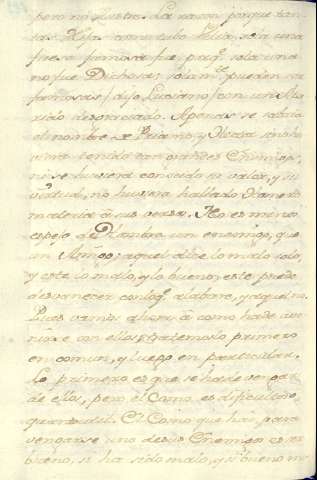 pero no ilustre. La razon porque tan
fue famosa fue porq.e sola una
no fue Dichosa; solam.te pueden ser
famosas (dijo Luciano) con un Ma
rido desgraciado. Apenas se sabria
el nombre de Priamo, y Hector sino hu
viera tenido tan grandes Enemigos,
no se huviera conocido su valor, y su
virtud, no huviera hallado Homero
materia à sus versos. No es menos
espejo del hombre un enemigo, que
un Amigo; aquel dice lo malo solo,
y este lo malo, y lo bueno; este puede
desvanecer con lo q.e alabare, y aquel no.
Pues vamos ahora à como hade avi
nirse con ellos; tratemoslo primero
en comun, y luego en particular.
Lo primero es que se hade vengar
de ellos, pero el Como es dificultoso,
quanto util. El Como que hai para
vengarse uno de sus Enemigos es ser
bueno, si ha sido malo, y si bueno me